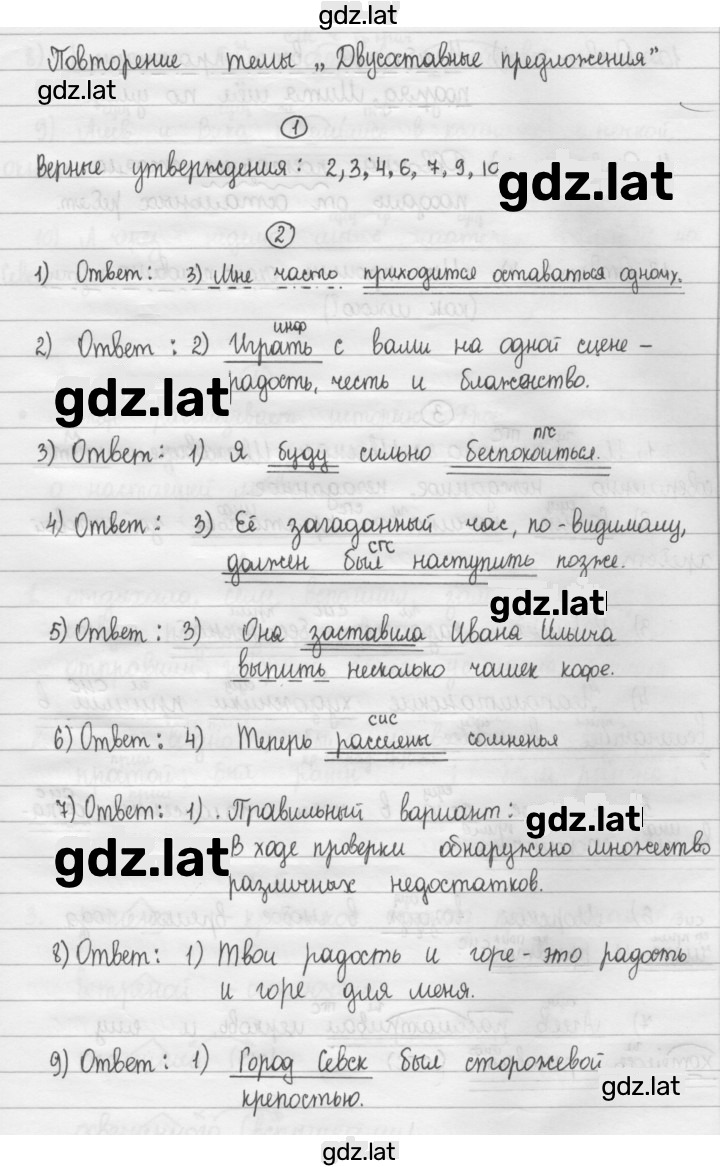 gdz.lat
Повторение темы „Двусоставные предложения"
gdz.lat
1
Верные утверждения: 2, 3, 4, 6, 7, 9, 10
gdz.lat
2
1) Ответ: 3) Мне часто приходится оставаться одному.
инф
2) Ответ: 2) Играть с вами на одной сцене –
радость, честь и блаженство.
gdz.lat
пгс
3) Ответ: 1) Я буду сильно беспокоиться.
4) Ответ: 3) Её загаданный час, по-видимому,
сгс
должен был наступить позже.
gdz.lat
5) Ответ: 3) Она заставила Ивана Ильича
выпить несколько чашек кофе.
сис
6) Ответ: 4) Теперь рассеяны сомненья
7) Ответ: 1). Правильный вариант:
gdz.lat
gdz.lat
В ходе проверки обнаружено множество
различных недостатков.
8) Ответ: 1) Твои радость и горе – это радость
и горе для меня.
9) Ответ: 1) Город Севск был сторожевой
крепостью.
gdz.lat
gdz.lat